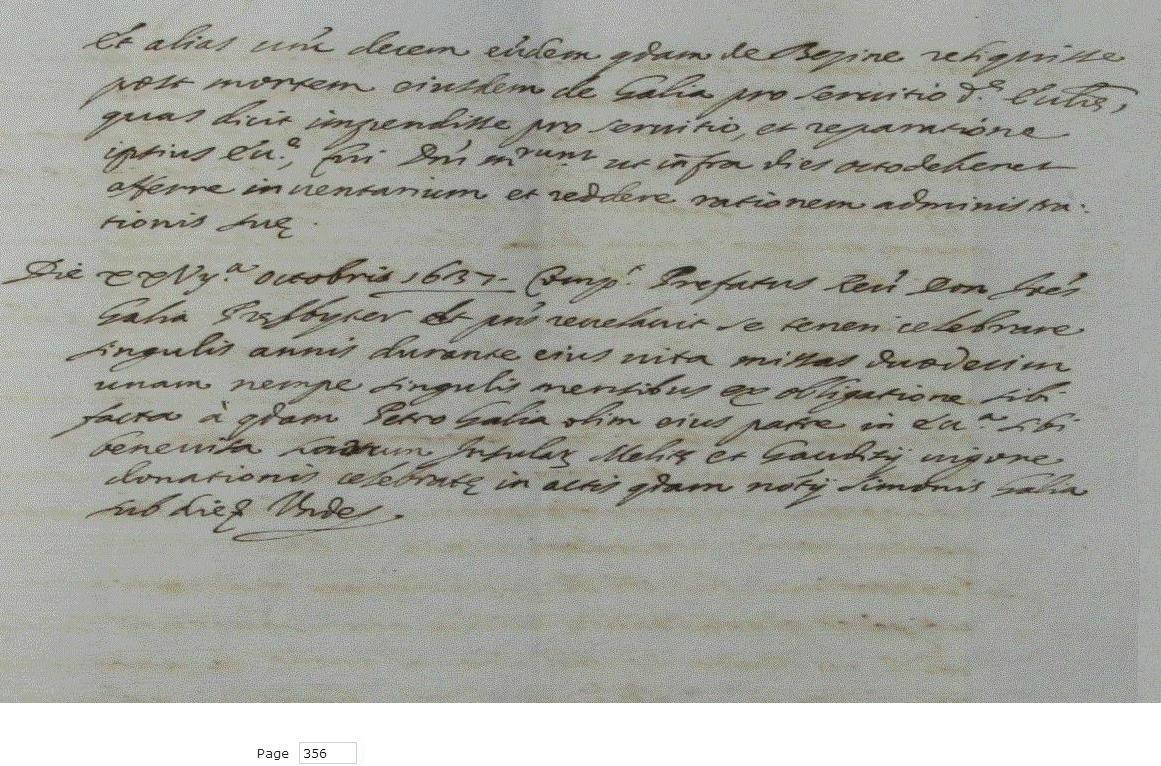 et alias unc. decem eiusdem qdam de Bogine reliquisse
post mortem eiusdem de Galia pro servitio d.ᵉ
quas dicit impendisse pro servitio, et reparatione
ipsius Ecc.ᵃ, Dni ut infra dies octo deberet
afferre inventarium et reddere rationem administra-
tionis suę.
Die xxvij.ᵃ octobris 1637. Comp.ᵗ Prefatus Reu. Don
Galia Presbyter et revelavit se teneri celebrare
singulis annis durante eius vita missas duodecim
unam nempe singulis mensibus ex obligatione sibi
facta à qdam Petro Galia olim eius patre in sibi
benevisa Insular. Melitę et Gaudisij vigore
donationis celebratę in actis qdam notij Simonis Galia
sub die
Page 356